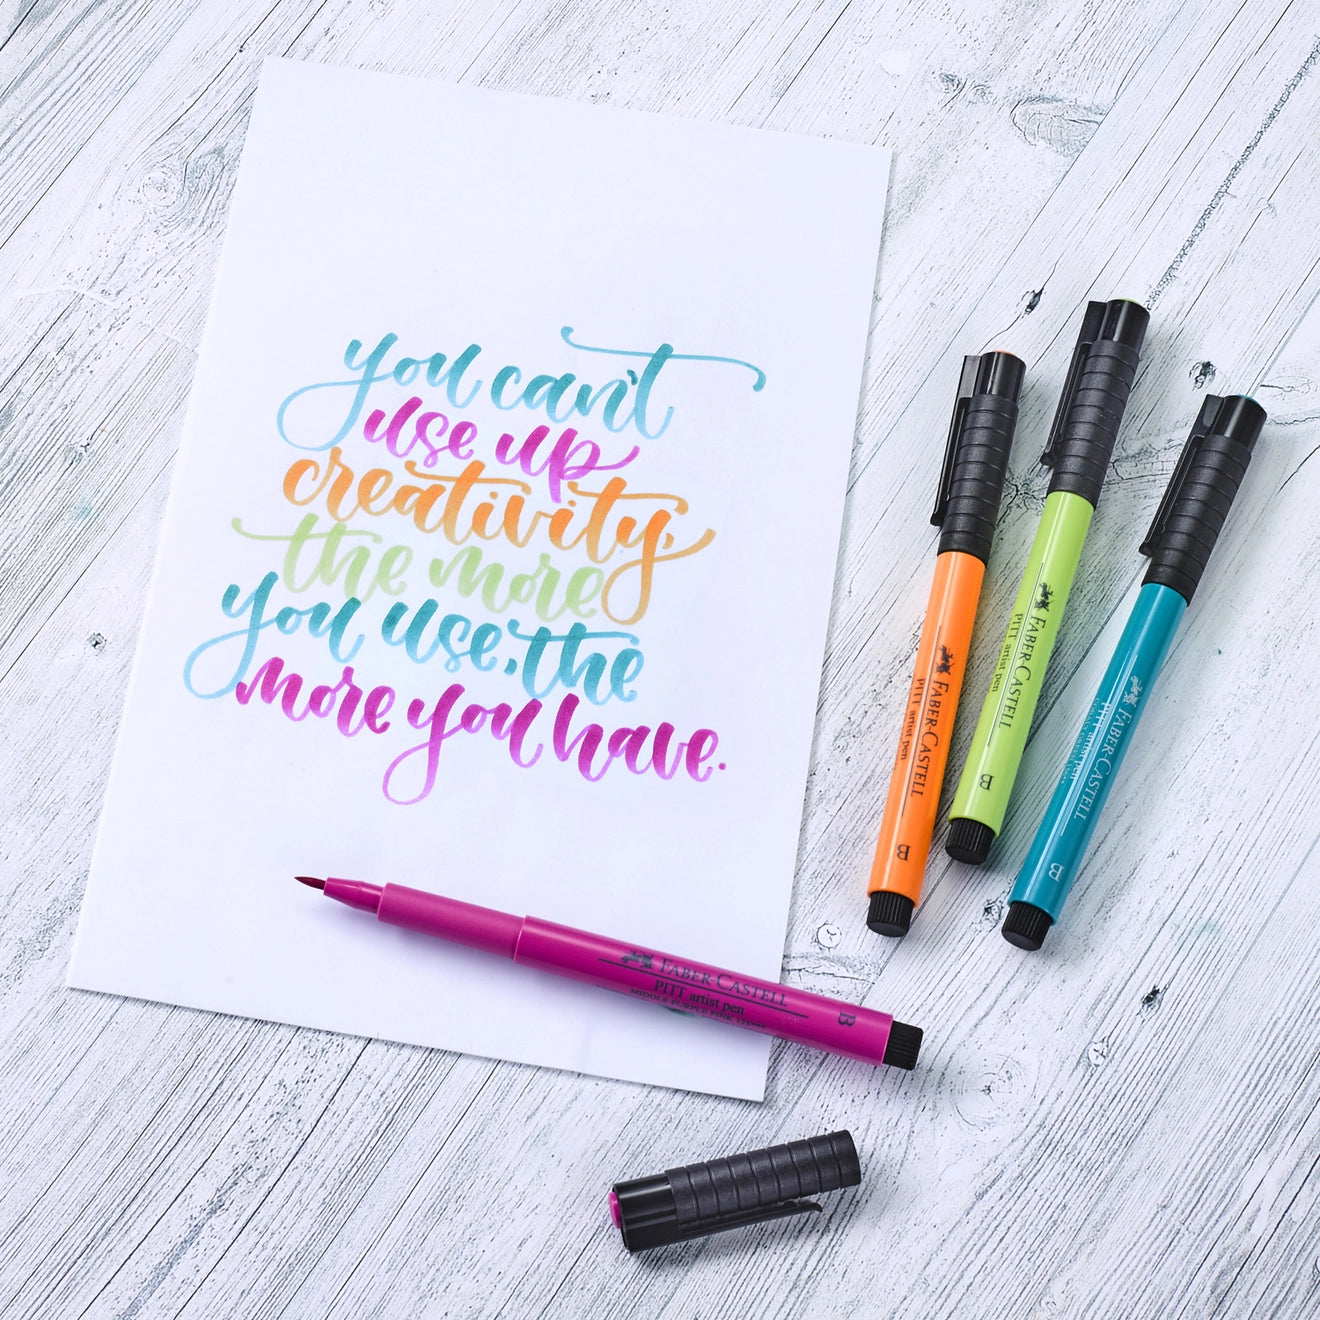 you can't
use up
creativity,
the more
you use, the
more you have.
FABER-CASTELL
PITT artist pen
B
FABER-CASTELL
PITT artist pen
B
FABER-CASTELL
PITT artist pen
B
FABER-CASTELL
PITT artist pen
MIDDLE PURPLE PINK 125***
B